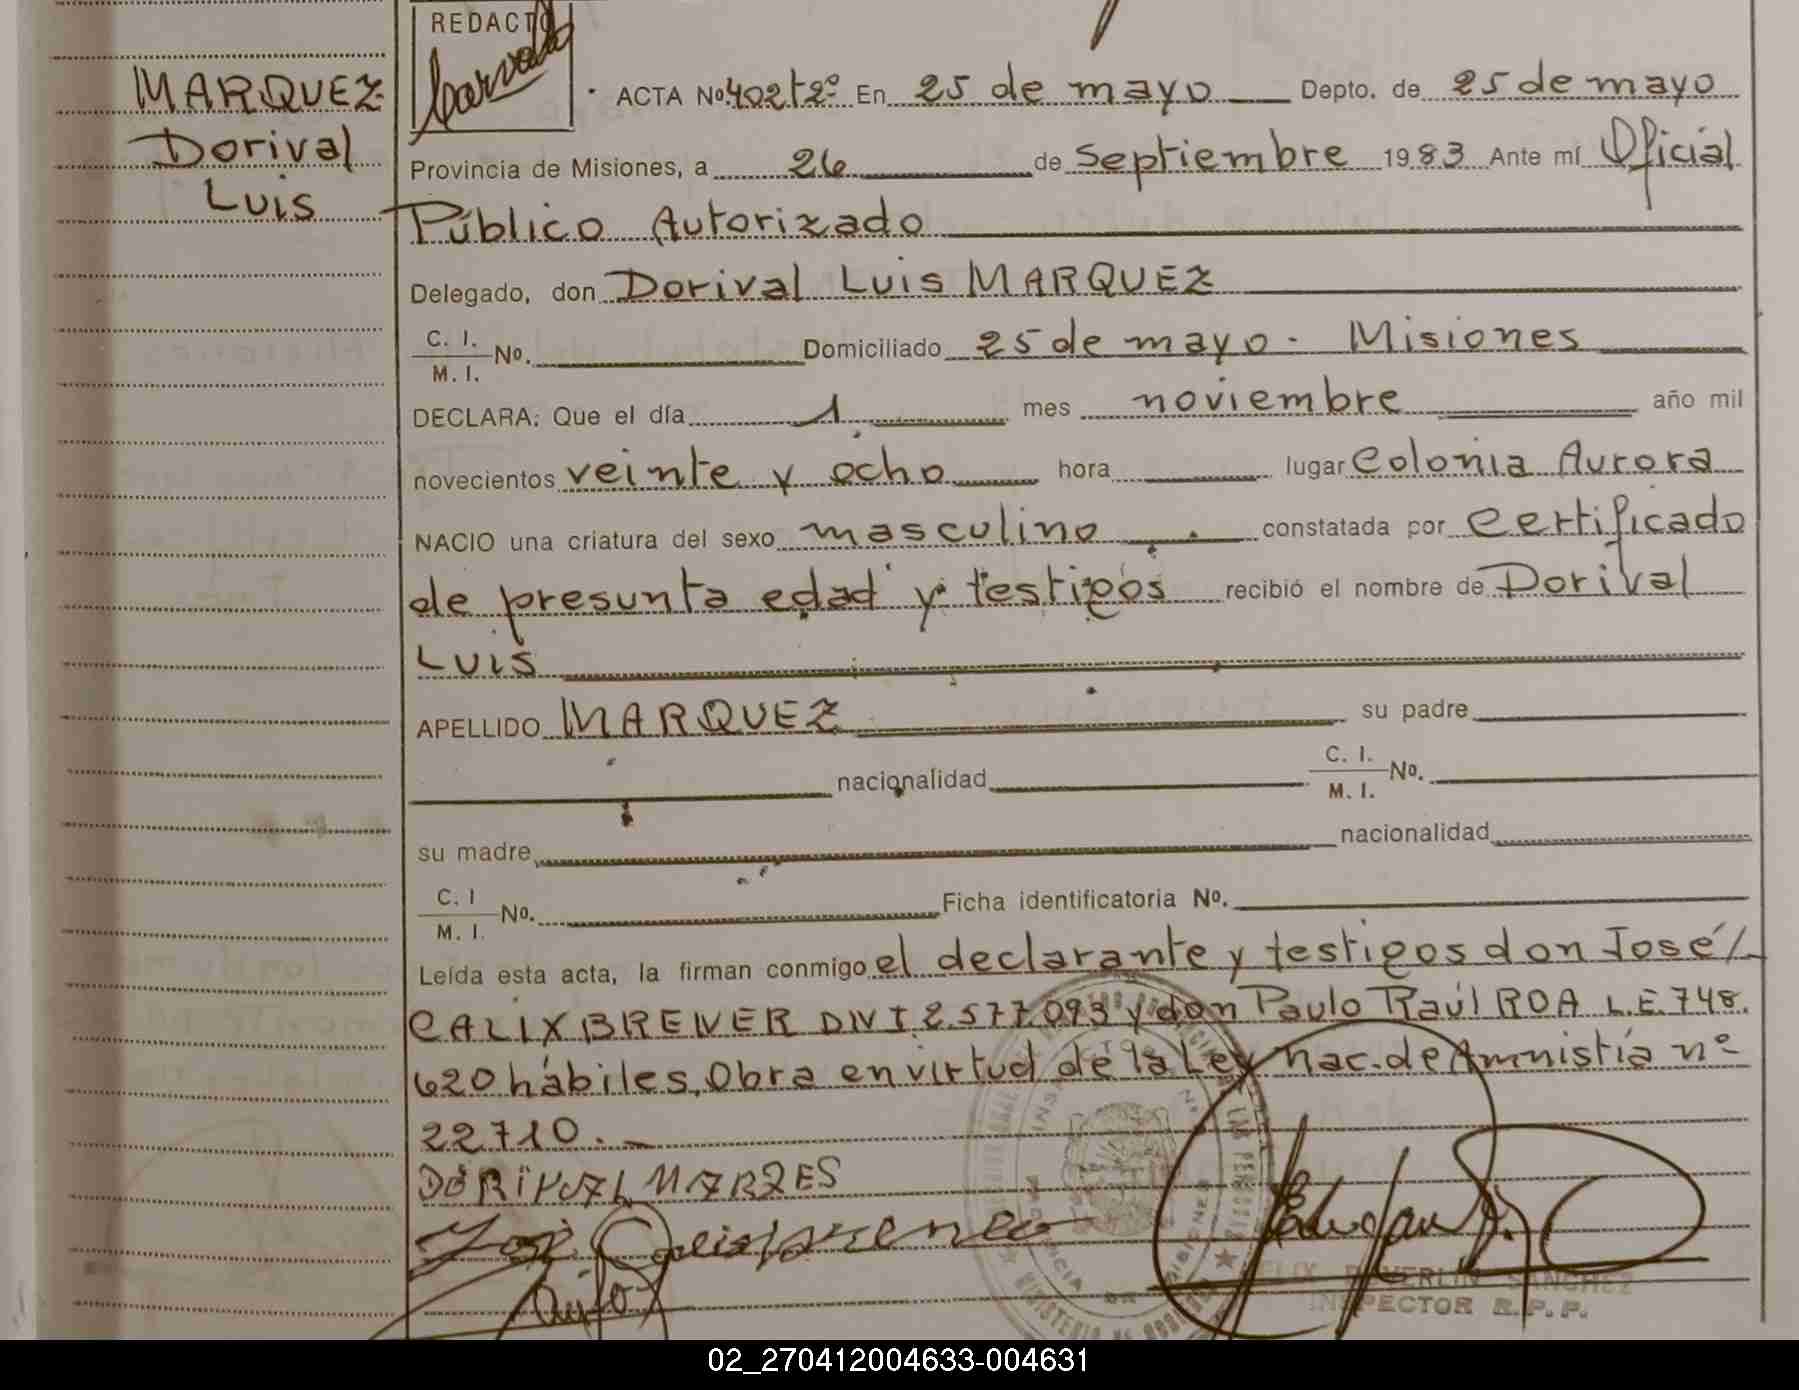 REDACTO
MARQUEZ
Dorival
Luis
ACTA Nº 402 tº 2º En 25 de mayo Depto. de 25 de mayo
Provincia de Misiones, a 26 de Septiembre 1983 Ante mí Oficial
Público Autorizado
Delegado, don Dorival Luis MARQUEZ
C. I.
M. I. Nº. Domiciliado 25 de mayo - Misiones
DECLARA: Que el día 1 mes noviembre año mil
novecientos veinte y ocho hora lugar Colonia Aurora
NACIO una criatura del sexo masculino constatada por certificado
de presunta edad y testigos recibió el nombre de Dorival
Luis
APELLIDO MARQUEZ su padre
nacionalidad C. I.
M. I. Nº.
su madre nacionalidad
C. I
M. I. Nº. Ficha identificatoria Nº.
Leída esta acta, la firman conmigo el declarante y testigos don José
CALIXBRENER DNI 2.577.093 y don Paulo Raúl ROA L.E. 748.
620 hábiles, Obra en virtud de la Ley nac. de Amnistía nº
22710.
INSPECTOR R. P. P.
02_270412004633-004631